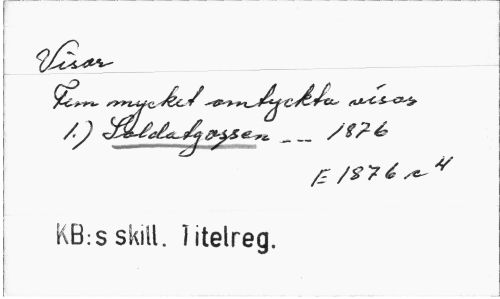 Visor
Fem mycket omtyckta visor
1.) Soldatgossen -- 1876
E 1876 c 4
KB:s skill. Titelreg.